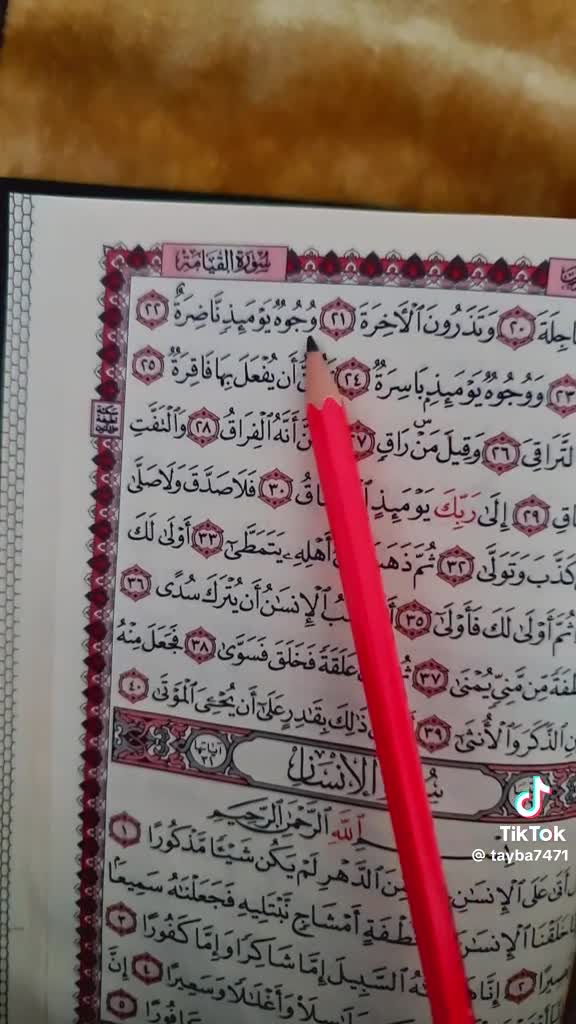 سُورَةُ الْقِيَامَةِ
وَتَذَرُونَ ٱلْأَخِرَةَ ٢١ وُجُوهٌ يَوْمَئِذٍ نَّاضِرَةٌ ٢٢
٢٣ وَوُجُوهٌ يَوْمَئِذٍۭ بَاسِرَةٌ ٢٤ أَن يُفْعَلَ بِهَا فَاقِرَةٌ ٢٥
ٱلتَّرَاقِىَ ٢٦ وَقِيلَ مَنْۜ رَاقٍ ٢٧ أَنَّهُ ٱلْفِرَاقُ ٢٨ وَٱلْتَفَّتِ
٢٩ إِلَىٰ رَبِّكَ يَوْمَئِذٍ ٣٠ فَلَا صَدَّقَ وَلَا صَلَّىٰ
كَذَّبَ وَتَوَلَّىٰ ٣٢ ثُمَّ ذَهَبَ أَهْلِهِۦ يَتَمَطَّىٰٓ ٣٣ أَوْلَىٰ لَكَ
ثُمَّ أَوْلَىٰ لَكَ فَأَوْلَىٰٓ ٣٥ ٱلْإِنسَٰنُ أَن يُتْرَكَ سُدًى ٣٦
مِّن مَّنِىٍّ يُمْنَىٰ ٣٧ عَلَقَةً فَخَلَقَ فَسَوَّىٰ ٣٨ فَجَعَلَ مِنْهُ
ٱلذَّكَرَ وَٱلْأُنثَىٰٓ ٣٩ ذَٰلِكَ بِقَٰدِرٍ عَلَىٰٓ أَن يُحْـِۧىَ ٱلْمَوْتَىٰ ٤٠
ٱلْإِنْسَانِ آيَاتُهَا ٣١
ٱللَّهِ ٱلرَّحْمَٰنِ ٱلرَّحِيمِ
أَتَىٰ عَلَى ٱلْإِنسَٰنِ ٱلدَّهْرِ لَمْ يَكُن شَيْـًٔا مَّذْكُورًا ١
خَلَقْنَا ٱلْإِنسَٰنَ نُّطْفَةٍ أَمْشَاجٍ نَّبْتَلِيهِ فَجَعَلْنَٰهُ سَمِيعًۢا
٢ ٱلسَّبِيلَ إِمَّا شَاكِرًا وَإِمَّا كَفُورًا ٣
وَأَغْلَٰلًا وَسَعِيرًا ٤ إِنَّ
٥
TikTok
@tayba7471